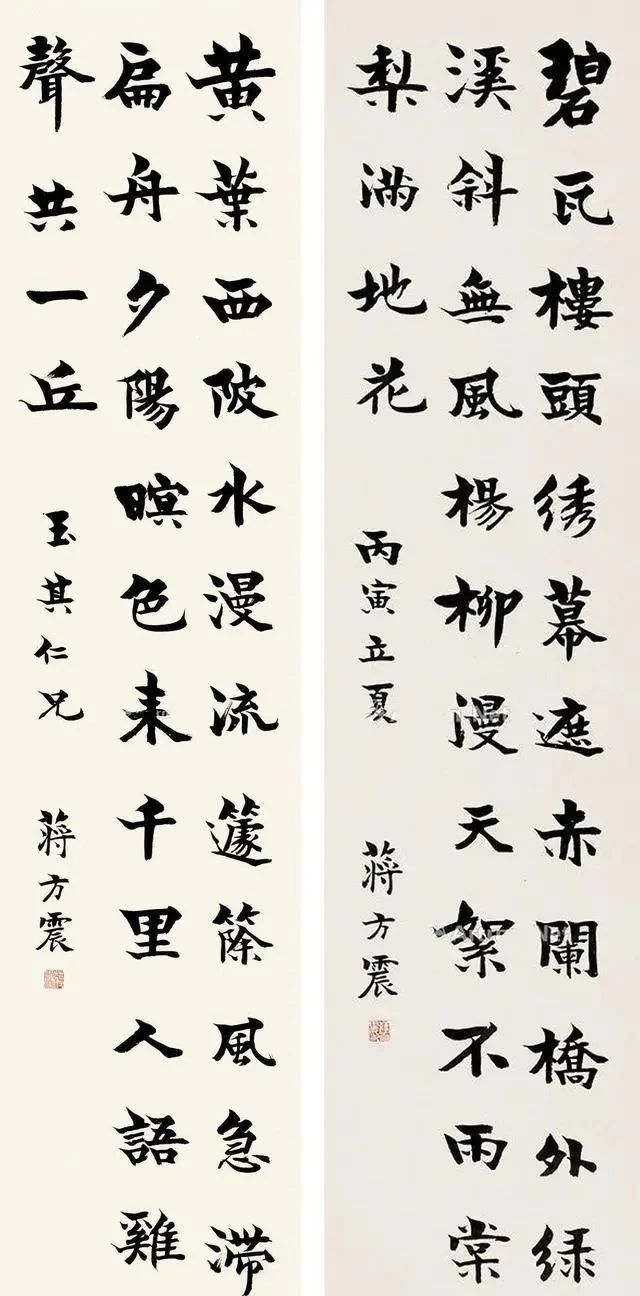 碧瓦樓頭綉幕遮赤闌橋外緑
溪斜無風楊柳漫天絮不雨棠
梨滿地花
丙寅立夏
蔣方震
黃葉西陂水漫流籧篨風急滯
扁舟夕陽暝色来千里人語雞
聲共一丘
玉其仁兄
蔣方震